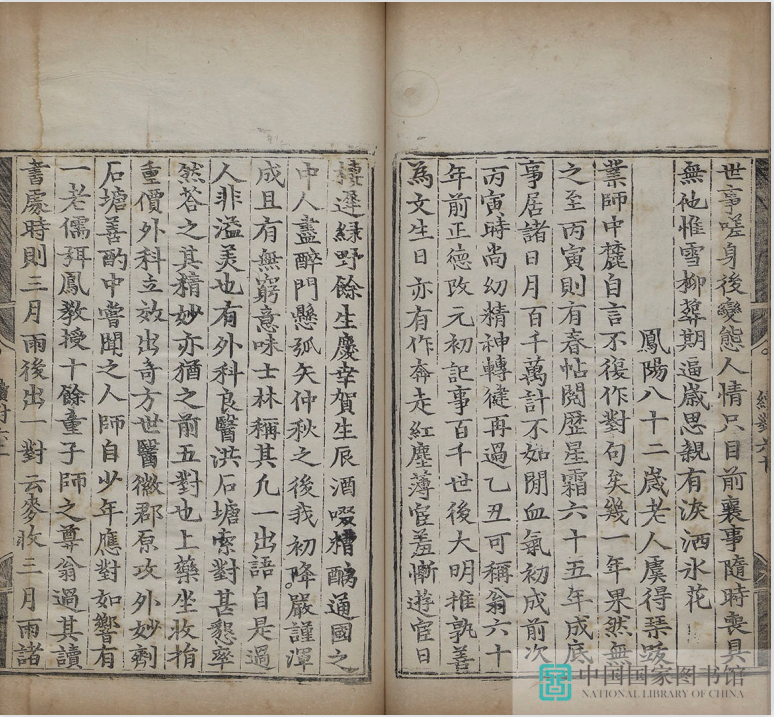 世事嗟身後變態人情只目前襄事隨時喪具
無袘惟雪柳葬期逼歲思親有淚洒氷花
鳳陽八十二歲老人虞得琹跋
業師中麓自言不復作對句矣幾一年果然無
之至丙寅則有春帖閱歷星霜六十五年成底
事居諸日月百千萬計不如閒血氣初成前次
丙寅時尚㓜精神轉健再過乙丑可稱翁六十
年前正德改元初記事百千世後大明推孰善
為文生日亦有作奔走紅塵薄宦羞慚遊宦日
棲遲綠野餘生慶幸賀生辰酒啜糟醨通國之
中人盡醉門懸弧矢仲秋之後我初降嚴謹渾
成且有無窮意味士林稱其凢一出語自是過
人非溢美也有外科良醫洪石塘索對甚懇率
然荅之其精妙亦猶之前五對也上藥坐收指
重價外科立效出奇方世醫徽郡原攻外妙劑
石塘善酌中嘗聞之人師自少年應對如響有
一老儒弭鳳教授十餘童子師之尊翁過其讀
書處時則三月雨後出一對云麥收三月雨諸
中国国家图书馆
NATIONAL LIBRARY OF CHINA